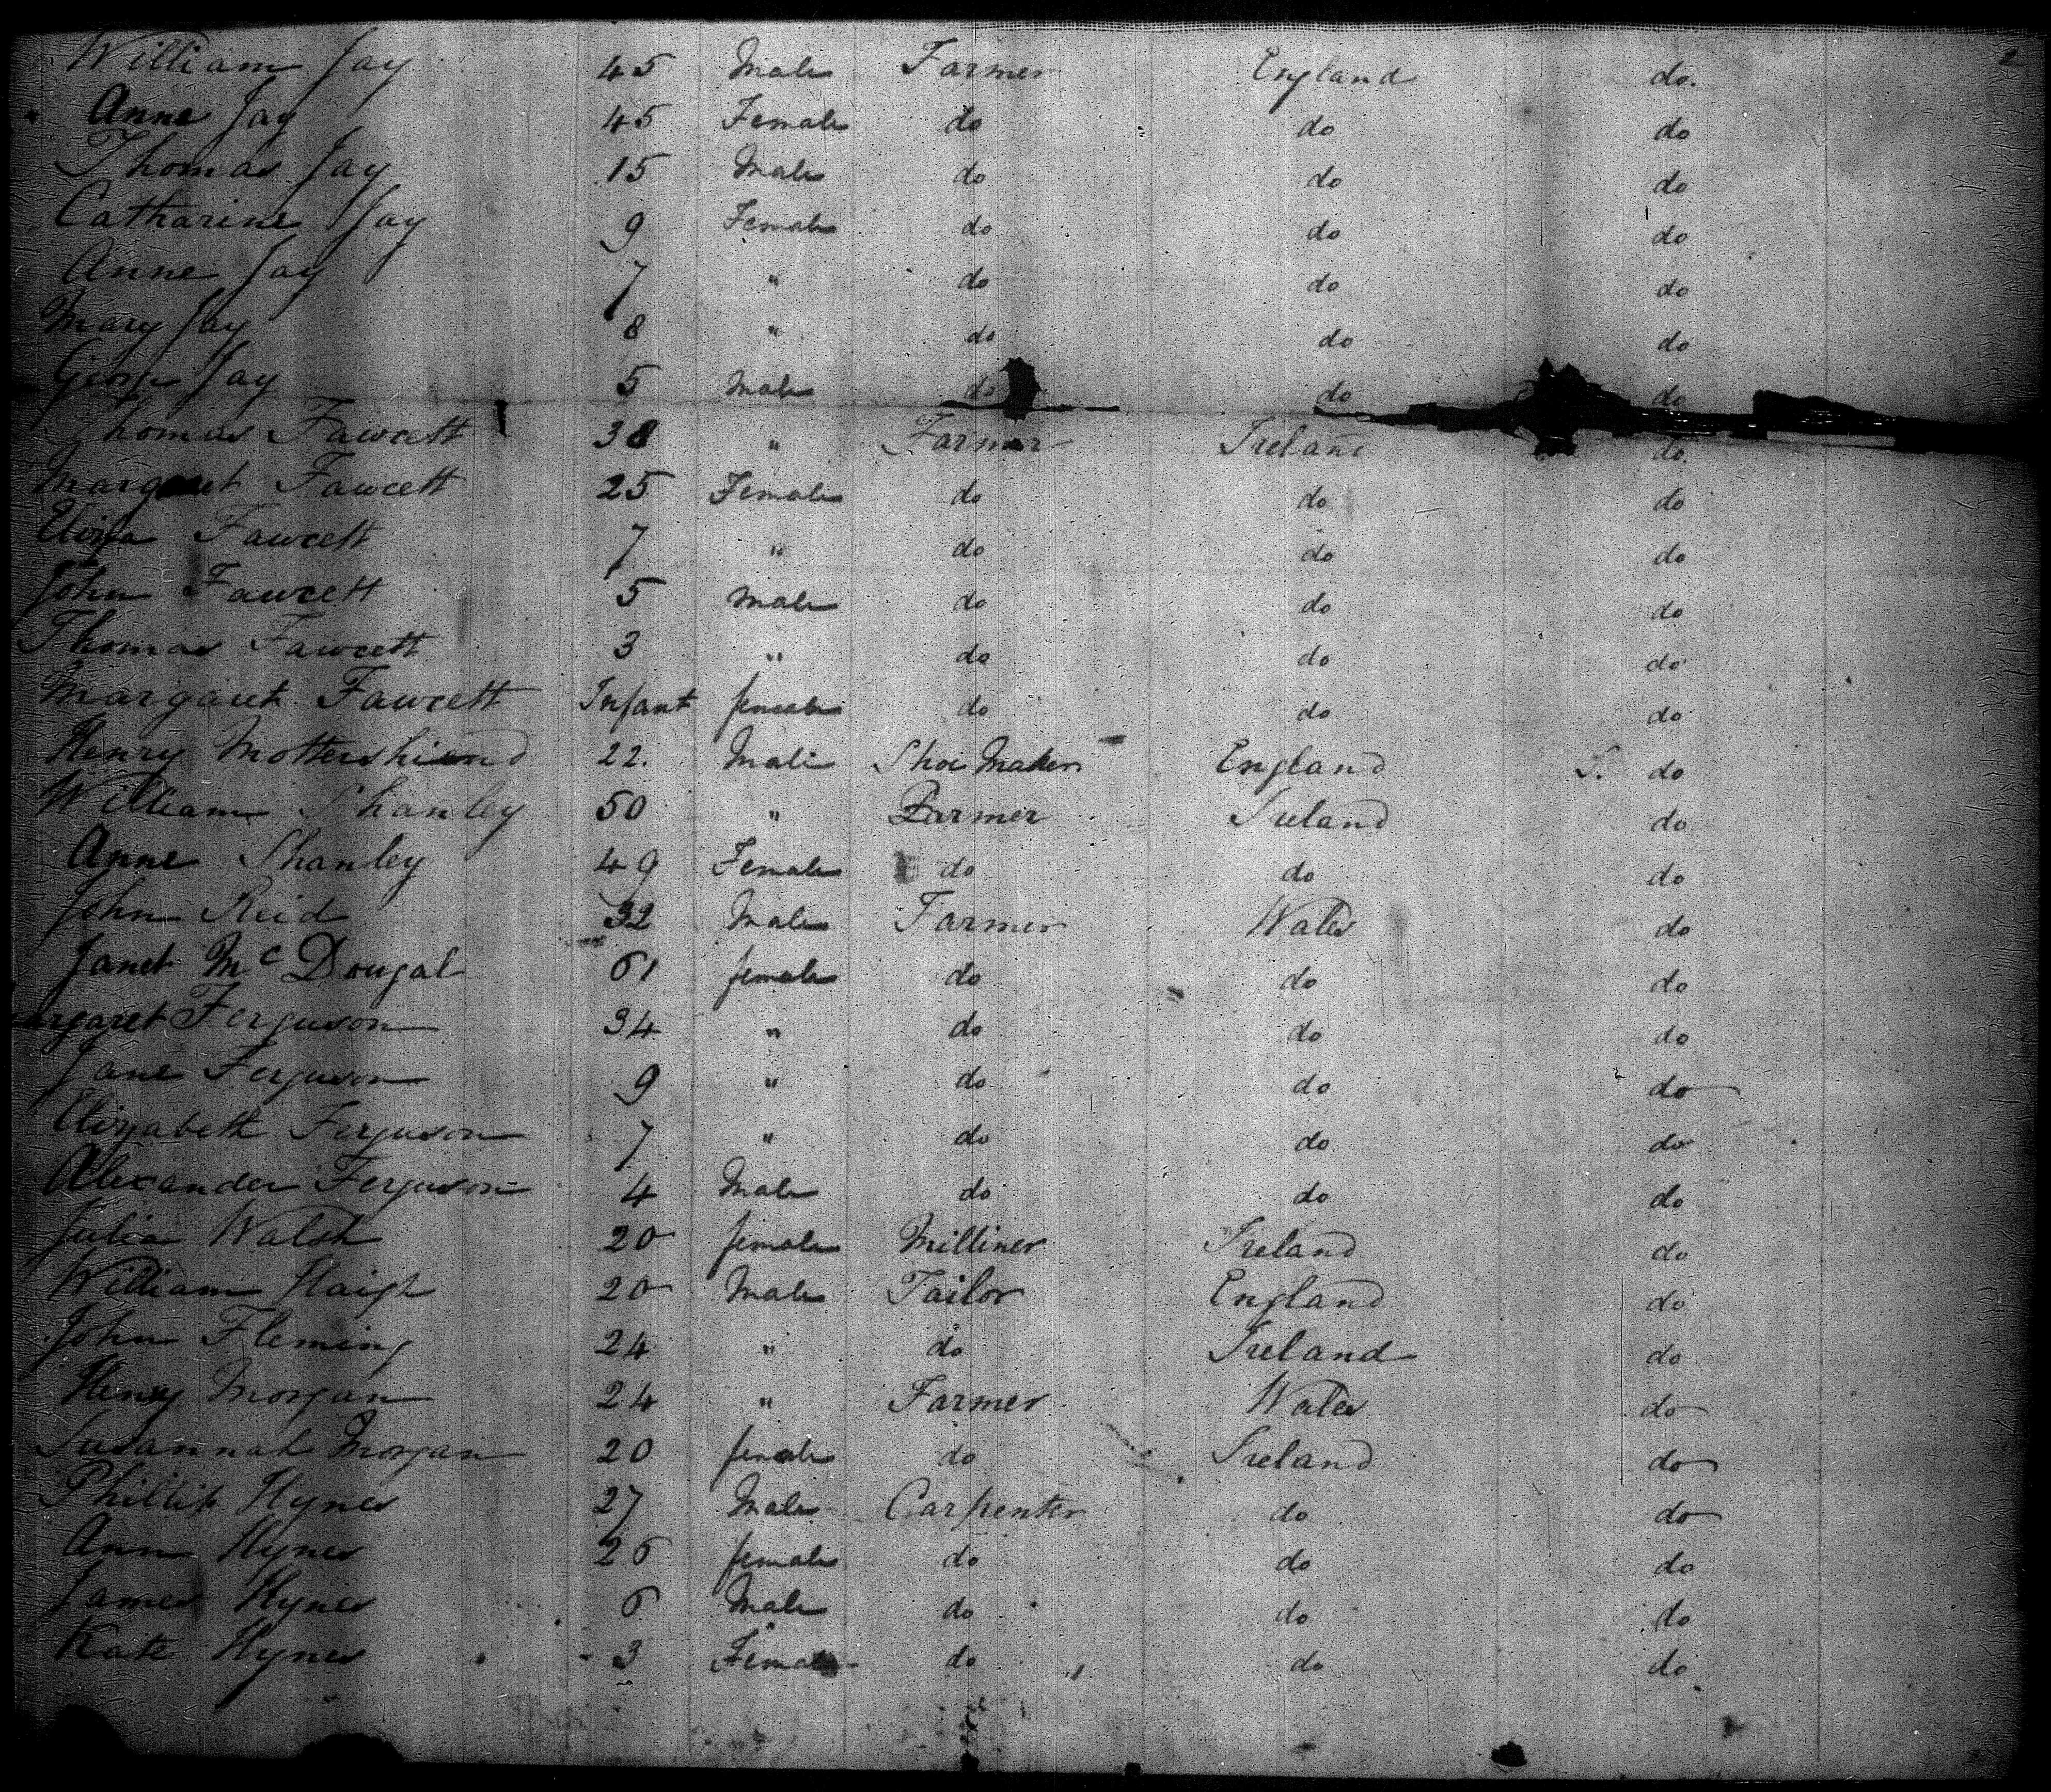 2
William Jay 45 Male Farmer England do.
Anne Jay 45 Female do do do
Thomas Jay 15 Male do do do
Catharine Jay 9 Female do do do
Anne Jay 7 " do do do
Mary Jay 8 " do do do
George Jay 5 Male do do do
Thomas Fawcett 38 " Farmer Ireland do.
Margaret Fawcett 25 Female do do do
Eliza Fawcett 7 " do do do
John Fawcett 5 Male do do do
Thomas Fawcett 3 " do do do
Margaret Fawcett Infant female do do do
Henry 22. Male Shoe Maker England do
William Shanley 50 " Farmer Ireland do
Anne Shanley 49 Female do do do
John Reid 32 Male Farmer Wales do
Janet Mc Dougal 61 female do do do
argaret Ferguson 34 " do do do
Jane Ferguson 9 " do do do
Elizabeth Ferguson 7 " do do do
Alexander Ferguson 4 Male do do do
Julia Walsh 20 female Milliner Ireland do
William Haigh 20 Male Tailor England do
John Fleming 24 " do Ireland do
Henry Morgan 24 " Farmer Wales do
Susannah Morgan 20 female do Ireland do
Phillip Hynes 27 Male Carpenter do do
Ann Hynes 26 female do do do
James Hynes 6 Male do do do
Kate Hynes 3 Female do do do